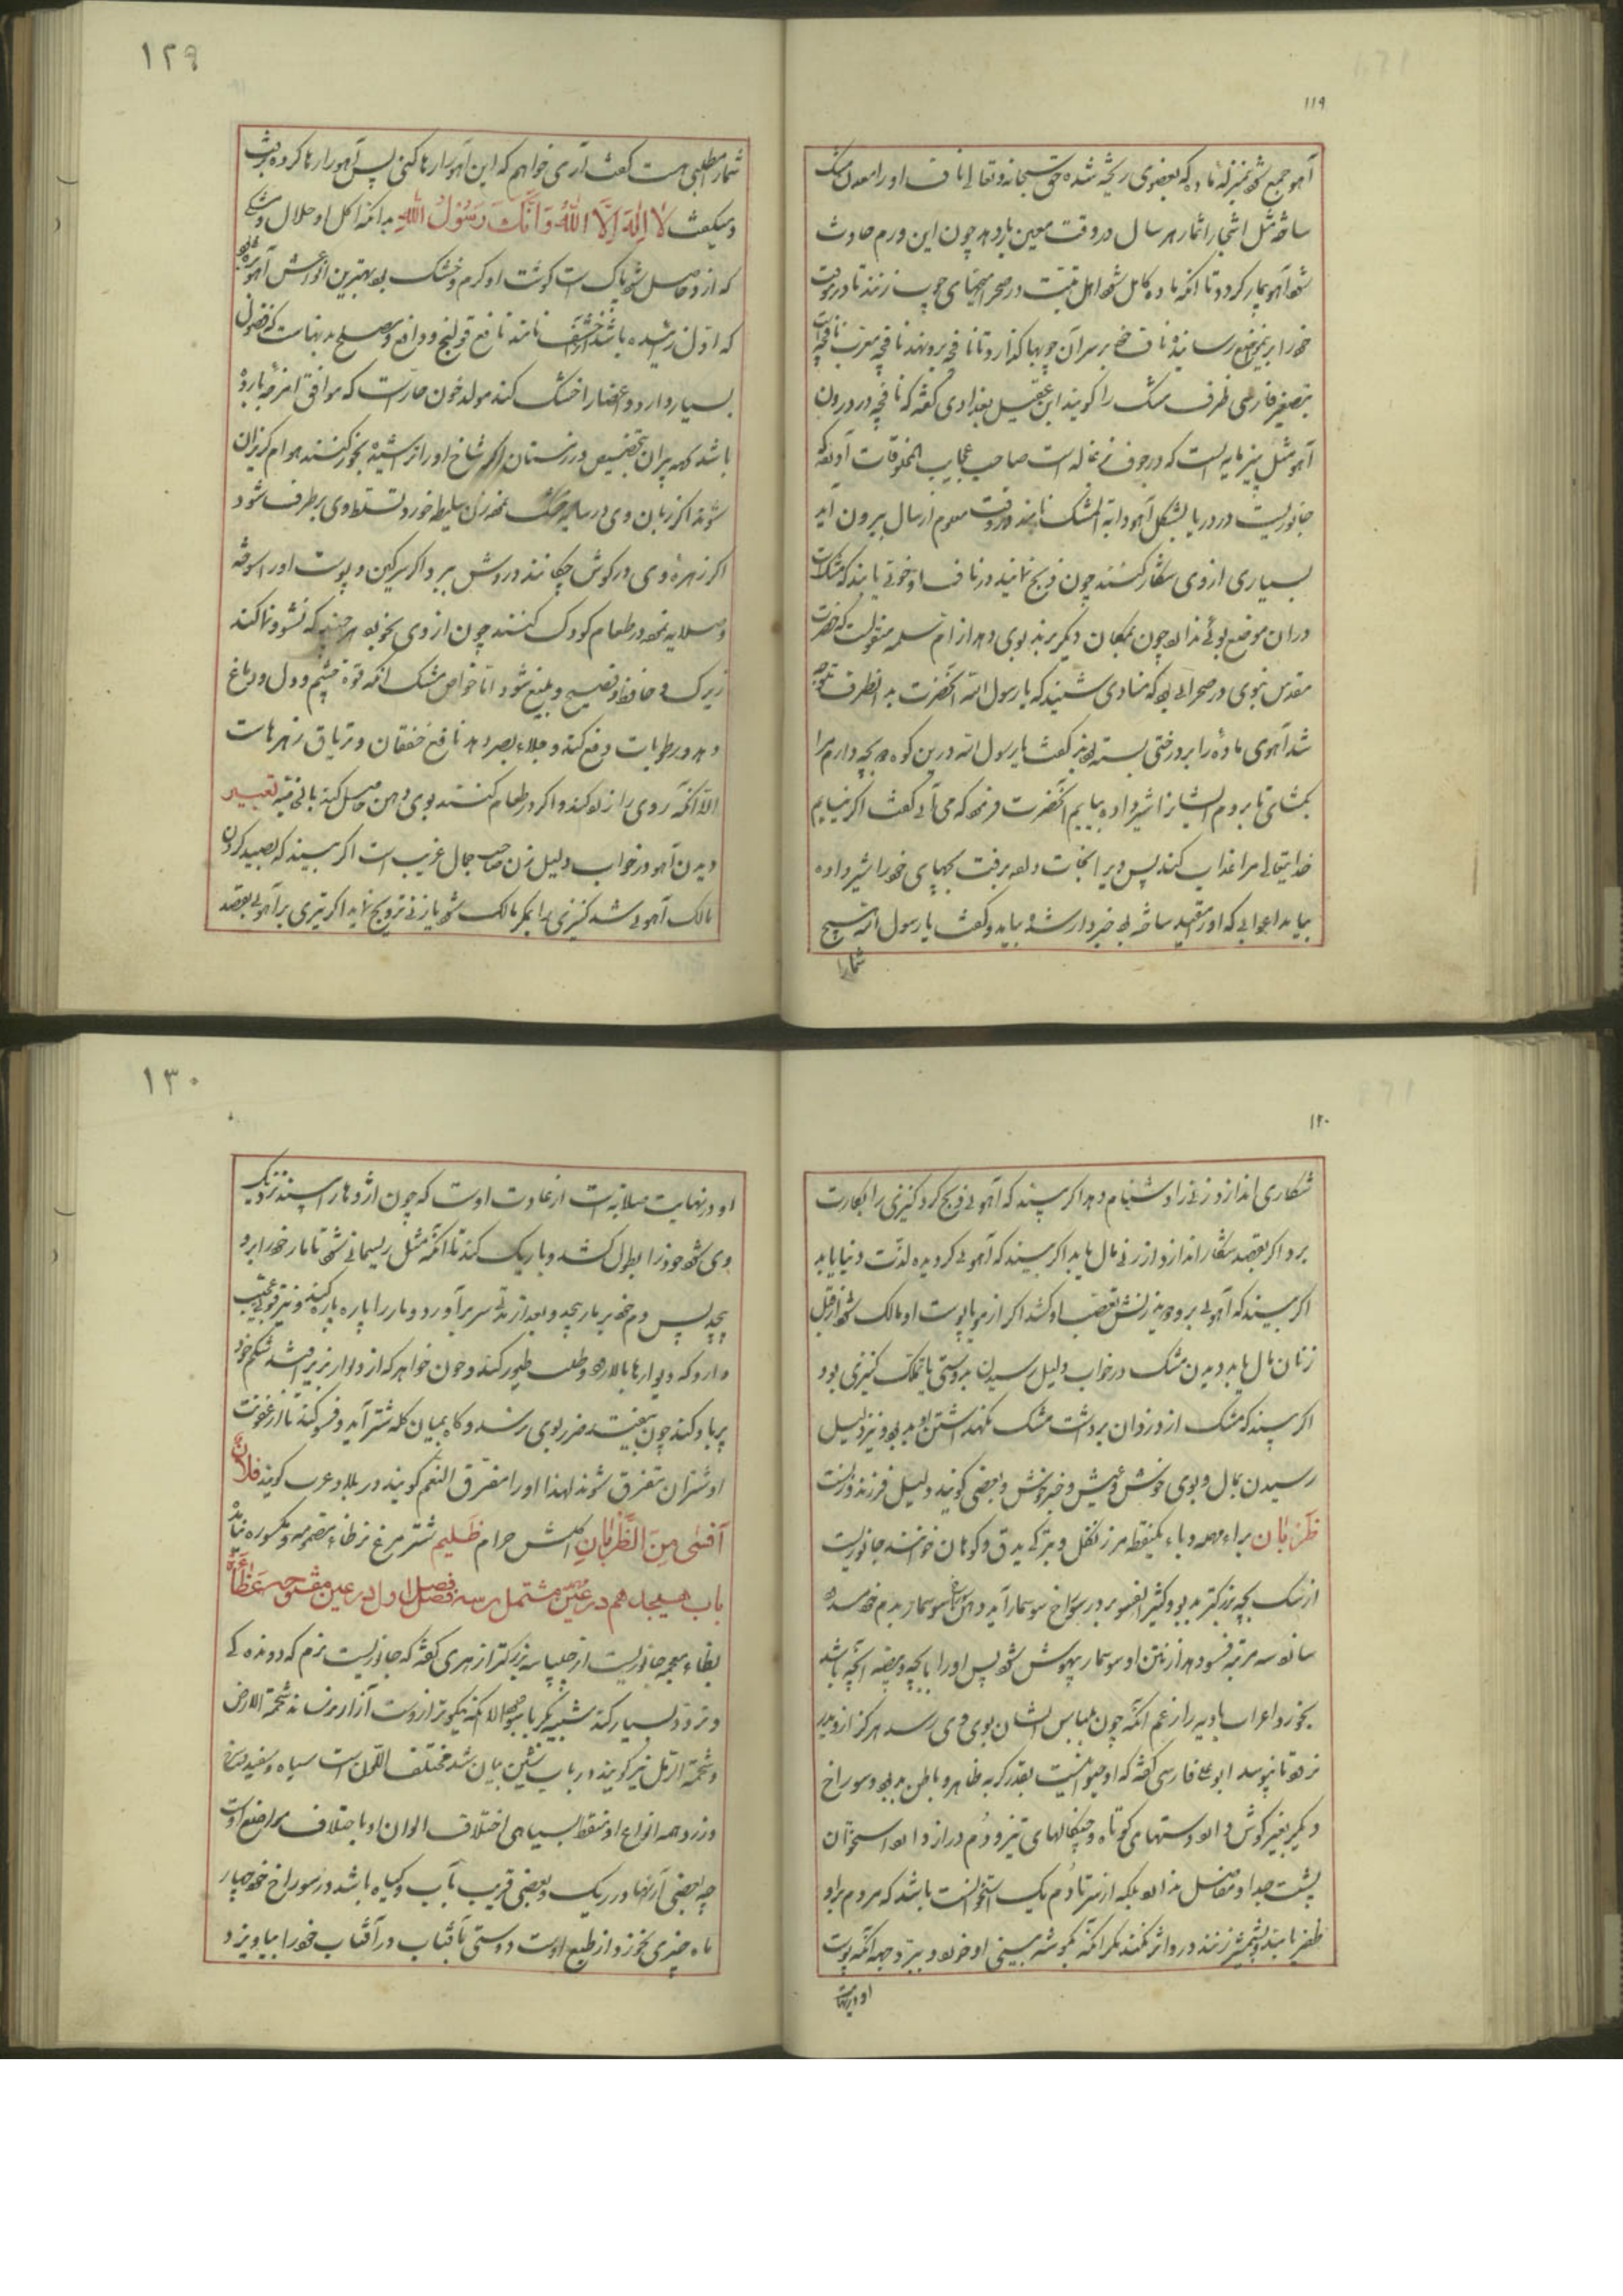 ۱۱۹
آهو جمع شود بمنزله ماده که بعضوی ریخته شده حق سبحانه و تعالی ناف او را معدن مشک
ساخته مثل اشجار اثمار هر سال در وقت معین بار دهد چون این ورم حادث
شود آهو بیمار گردد تا آنکه ماده کامل شود اهل تبت در صحرا میخهای چوب زنند تا در وقت
خود را بر آن موضع رساند و ناف خود بر سر آن چوبها گذارد تا نافچه برو بماند نافجه معرب نافچه است
بتصغیر فارسی ظرف مشک را گویند ابن عقیل بغدادی گفته که نافچه در درون
آهو مثل پنیرمایه ایست که در جوف بزغاله است صاحب عجایب المخلوقات آورده که
جانوریست در دریا بشکل آهو دابة المشک نامند در وقت معلوم از سال بیرون آید
بسیاری از وی شکار کنند چون ذبح نمایند در ناف او خونی یابند که مشک است
در آن موضع بوئی ندارد چون بمکان دیگر برند بوی دهد از ام سلمه منقولست که حضرت
مقدس نبوی در صحرائی بود که منادی شنید که یا رسول الله آنحضرت بدانطرف متوجه
شد آهوی ماده را بر درختی بسته بودند گفت یا رسول الله درین کوه دو بچه دارم مرا
بگشای تا بروم ایشانرا شیر داده بیایم آنحضرت فرمود که می آئی گفت اگر نیایم
خدایتعالی مرا عذاب کند پس ویرا نجات داد برفت بچهای خود را شیر داده
بیامد اعرابی که او را مقید ساخته بود خبردار شده بیامد و گفت یا رسول الله هیچ
شما را
۱۲۹
شما را مطلبی هست گفت آری خواهم که این آهو را رها کنی پس آهو را رها کرده میرفت
و میگفت لا اِلهَ اِلاَّ اللهُ وَ اَنَّکَ رَسُولُ اللهِ بدانکه اکل او حلال و مشکی
که ازو حاصل شود پاک است گوشت او گرم و خشک بود بهترین انواعش آهو بره بود
که اول زائیده باشد خشف نامند نافع قولنج و دافع و مصلح بدنهاست که فضول
بسیار دارد و اعضا را خشک کند مولد خون حار است که موافق امزجه بارده
باشد کهه پیران بتخصیص در زمستان اگر شاخ او را تراشیده بخور کنند هوام گریزان
شوند اگر زبان وی در سایه خشک نموده زن سلیطه خورد تسلط وی برطرف شود
اگر زهره وی در گوش چکانند دردش ببرد اگر سرگین و پوست او را سوخته
و صلایه نموده در طعام کودک کنند چون از وی بخورد هر چند که نشو و نما کند
زیرک و حافظ و فصیح و بلیغ شود اما خواص مشک آنکه قوة چشم و دل و دماغ
دهد و رطوبات دفع کند و جلاء بصر دهد نافع خفقان و تریاق زهرهاست
الا آنکه روی را زرد کند و اگر در طعام کنند بوی دهن حاصل کند باقی فیه تعبیر
دیدن آهو در خواب دلیل زن صاحب جمال غریب است اگر بیند که بصید کردن
مالک آهوئی شد کنیزی بمکر مالک شود یا زنی تزویج نماید اگر تیری بر آهوئی بقصد
۱۲۰
شکاری اندازد زنی را دشنام دهد اگر بیند که آهوئی ذبح کرد کنیزی را بکارت
برد اگر بقصد شکار اندازد از زنی مال یابد اگر بیند که آهوئی گردیده لذت دنیا یابد
اگر بیند که آهوئی برو جهد زنش تعصب او کند اگر از مو یا پوست او مالک شود از قبل
زنان مال یابد دیدن مشک در خواب دلیل رسیدن بدوستی یا تملک کنیزی بود
اگر بیند که مشک از دزدان برداشت مشک نگهداشتن او بد بود و نیز دلیل
رسیدن بمال و بوی خوش و عیش و خبر خوش و بعضی گویند دلیل فرزند و زنست
ظَرِبان براء مهمله و باء یکنقطه مرز نکفل و ترکه بدق و کوهان خوانند جانوریست
از سگ بچه بزرگتر بدبو و کثیر الفسو بر در سوراخ سوسمار آید و دهن سوراخ سوسمار بدم خود مسدود
سازد سه مرتبه فسو دهد از نتن او سوسمار بیهوش شود پس او را با بچه و بیضه آنچه باشد
بخورد اعراب بادیه را زعم آنکه چون بلباس ایشان بوی وی رسد هرگز ازو بدر
نرود تا نپوسد ابو علی فارسی گفته که او حیوانیست بقدر گربه ظاهر و باطن بدبو و سوراخ
دیگر بغیر گوش دارد دستهای کوتاه و چنگالهای تیز و دم دراز دارد استخوان
پشت جدا و مفاصل ندارد بلکه از سر تا دم یک استخوانست باشد که مردم برو
ظفر یابند و شمشیر زنند درو اثر نکند مگر آنکه بگوشه بینی او خورد و ببرد چه آنکه پوست
او در نهایت
۱۳۰
او در نهایت صلابت است از عادت اوست که چون اژدها را بیند نزدیک
وی شود خود را بطول کشد و باریک کند تا آنکه مثل ریسمانی شود تا مار خود را برو
پیچد پس دم خود بر مار پیچد و بعد از مدتی سر برآورد و مار را پاره پاره کند و نیز قوتی عجیب
دارد که بدیوارها بالا رود و طلب طیور کند و چون خواهد که از دیوار بزیر افتد شکم خود
پر باد کند چون بیفتد ضرر بوی نرسد و گاه بمیان گله شتر آید و فسو کند تا از عفونت
او شتران متفرق شوند لهذا او را مفرق النعم گویند در بلاد عرب گویند فلان
اَفسی مِنَ الظَّرِبانِ اکلش حرام ظَلیم شتر مرغ نر ظاء مضمومه و مکسوره نیامده
باب هیجدهم در عین مهمله مشتمل بر سه فصل فصل اول در عین مفتوحه عَظاءَة
بظاء معجمه جانوریست از چلپاسه بزرگتر ازهری گفته که جانوریست نرم که دونده کی
و تردد بسیار کند شبیه بکرباسو الا آنکه نیکوتر ازوست آزار نرساند شحمة الارض
و شحمة الرمل نیز گویند در باب شین بیان شد مختلف اللون است سیاه و سفید و سرخ
و زرد و همه انواع او منقط بسیاهی اختلاف الوان او باختلاف مواضع اوست
چه بعضی از آنها در ریگ و بعضی قریب بآب و گیاه باشد در سوراخ خود چهار
ماه چیزی نخورد و از طبع اوست دوستی بآفتاب در آفتاب خود را بیاویزد